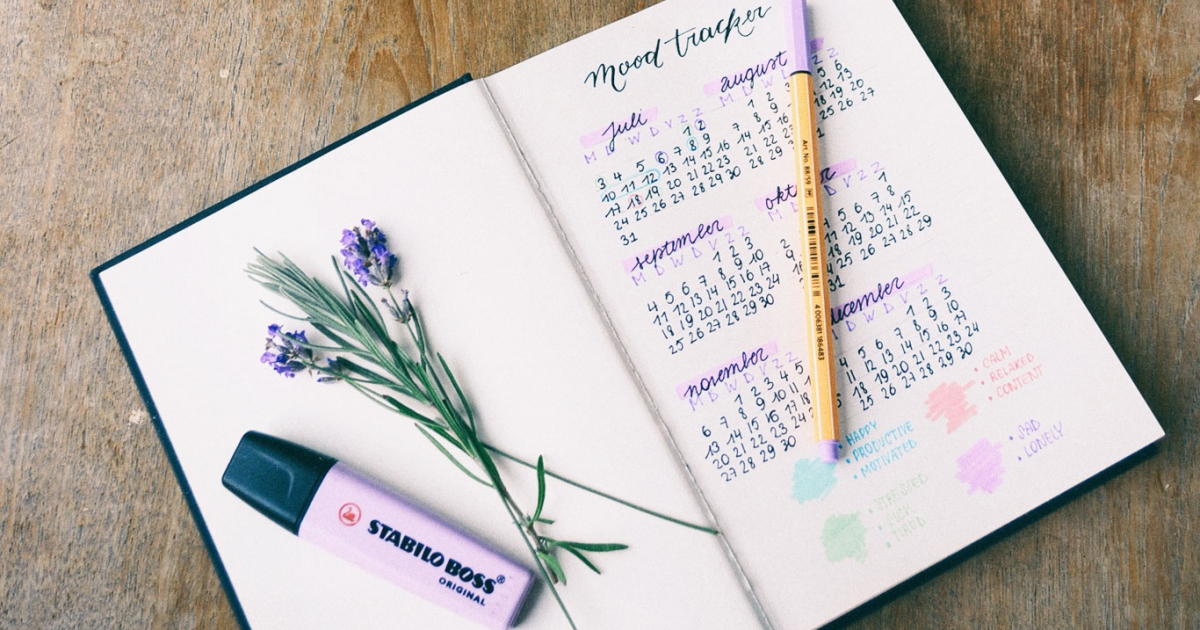 mood tracker
juli
M D W D V Z Z
1 2
3 4 5 6 7 8 9
10 11 12 13 14 15 16
17 18 19 20 21 22 23
24 25 26 27 28 29 30
31
august
M D W D Z Z
1 2 3 5 6
7 8 9 12 13
14 15 16 18 19 20
21 22 23 25 26 27
28 29 30
september
M D W D V Z Z
1 2 3
4 5 6 7 8 9 10
11 12 13 14 15 16 17
18 19 20 21 22 23 24
25 26 27 28 29 30
okt
M D V Z Z
1
2 5 6 7 8
12 13 14 15
16 18 19 20 21 22
25 26 27 28 29
31
november
M D W D V Z Z
1 2 3 4 5
6 7 8 9 10 11
13 14 15 16 17 18
20 21 22 23
27 28 29 30
december
D W D V Z Z
1 2 3
4 5 6 7 8 9 10
11 12 13 14 15 16 17
18 19 20 21 22 23 24
25 26 27 28 29 30
• CALM
• RELAXED
• CONTENT
• HAPPY
• PRODUCTIVE
• MOTIVATED
• SAD
• LONELY
• STRESSED
• TIRED
Art. No. 88/59
4 006381 186483
STABILO BOSS®
ORIGINAL